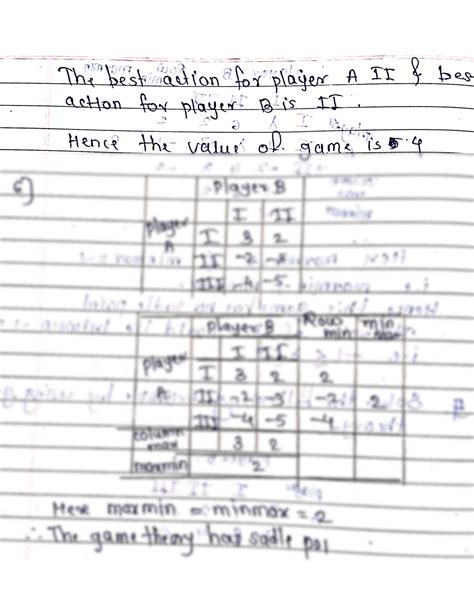 The best action for player A II & bes
action for player B is II.
Hence the value of game is 4
6)
Player B
I II
Player A
I 3 2
II -2
III -4 -5.
Player B Row min min max
I II
Player
I 3 2 2
A II -2 -3 2
III -4 -5 -4
column max 3 2
maxmin 2
Here maxmin = minmax = 2
∴ The game theory has sadle poi